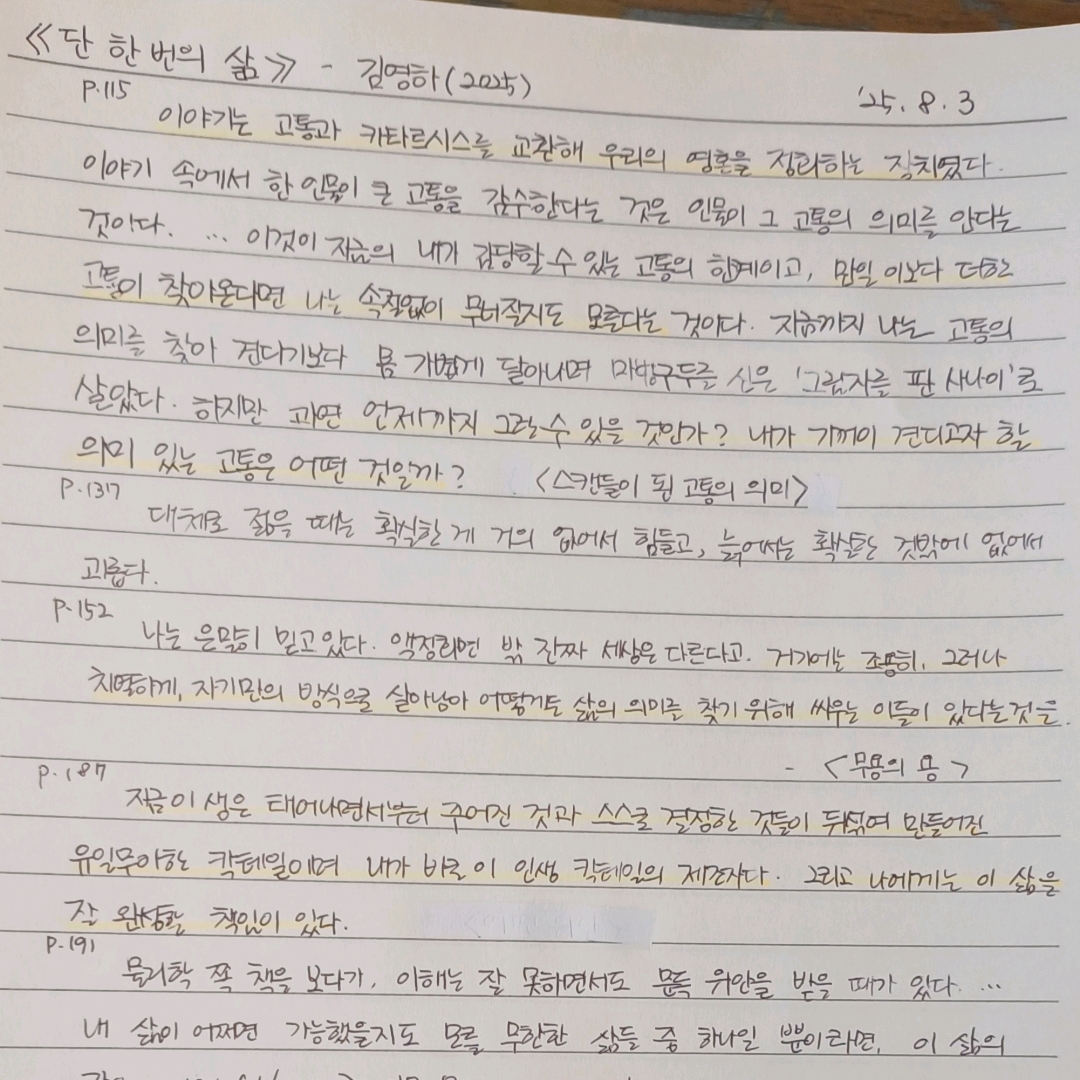 ≪단 한 번의 삶≫ - 김영하(2025)
'25. 8. 3
p.115
이야기는 고통과 카타르시스를 교환해 우리의 영혼을 정화하는 장치였다.
이야기 속에서 한 인물이 큰 고통을 감수한다는 것은 인물이 그 고통의 의미를 안다는
것이다. … 이것이 지금의 내가 감당할 수 있는 고통의 한계이고, 만일 이보다 더한
고통이 찾아온다면 나는 속절없이 무너질지도 모른다는 것이다. 지금까지 나는 고통의
의미를 찾아 견디기보다 몸 가볍게 달아나며 마방구두를 신은 '그림자를 판 사나이'로
살았다. 하지만 과연 언제까지 그럴 수 있을 것인가? 내가 기꺼이 견디고자 할
의미 있는 고통은 어떤 것일까? <스캔들이 된 고통의 의미>
p.137
대체로 젊을 때는 확실한 게 거의 없어서 힘들고, 늙어서는 확실한 것밖에 없어서
괴롭다.
p.152
나는 은밀히 믿고 있다. 액정화면 밖 진짜 세상은 다른다고. 거기에는 조용히, 그러나
치열하게, 자기만의 방식으로 살아남아 어떻게든 삶의 의미를 찾기 위해 싸우는 이들이 있다는 것을.
- <무용의 용>
p.187
지금 이 생은 태어나면서부터 주어진 것과 스스로 결정한 것들이 뒤섞여 만들어진
유일무이한 칵테일이며 내가 바로 이 인생 칵테일의 제조자다. 그리고 나에게는 이 삶을
잘 완성할 책임이 있다.
p.191
물리학 쪽 책을 보다가, 이해는 잘 못하면서도 문득 위안을 받을 때가 있다. …
내 삶이 어쩌면 가능했을지도 모를 무한한 삶들 중 하나일 뿐이라면, 이 삶의